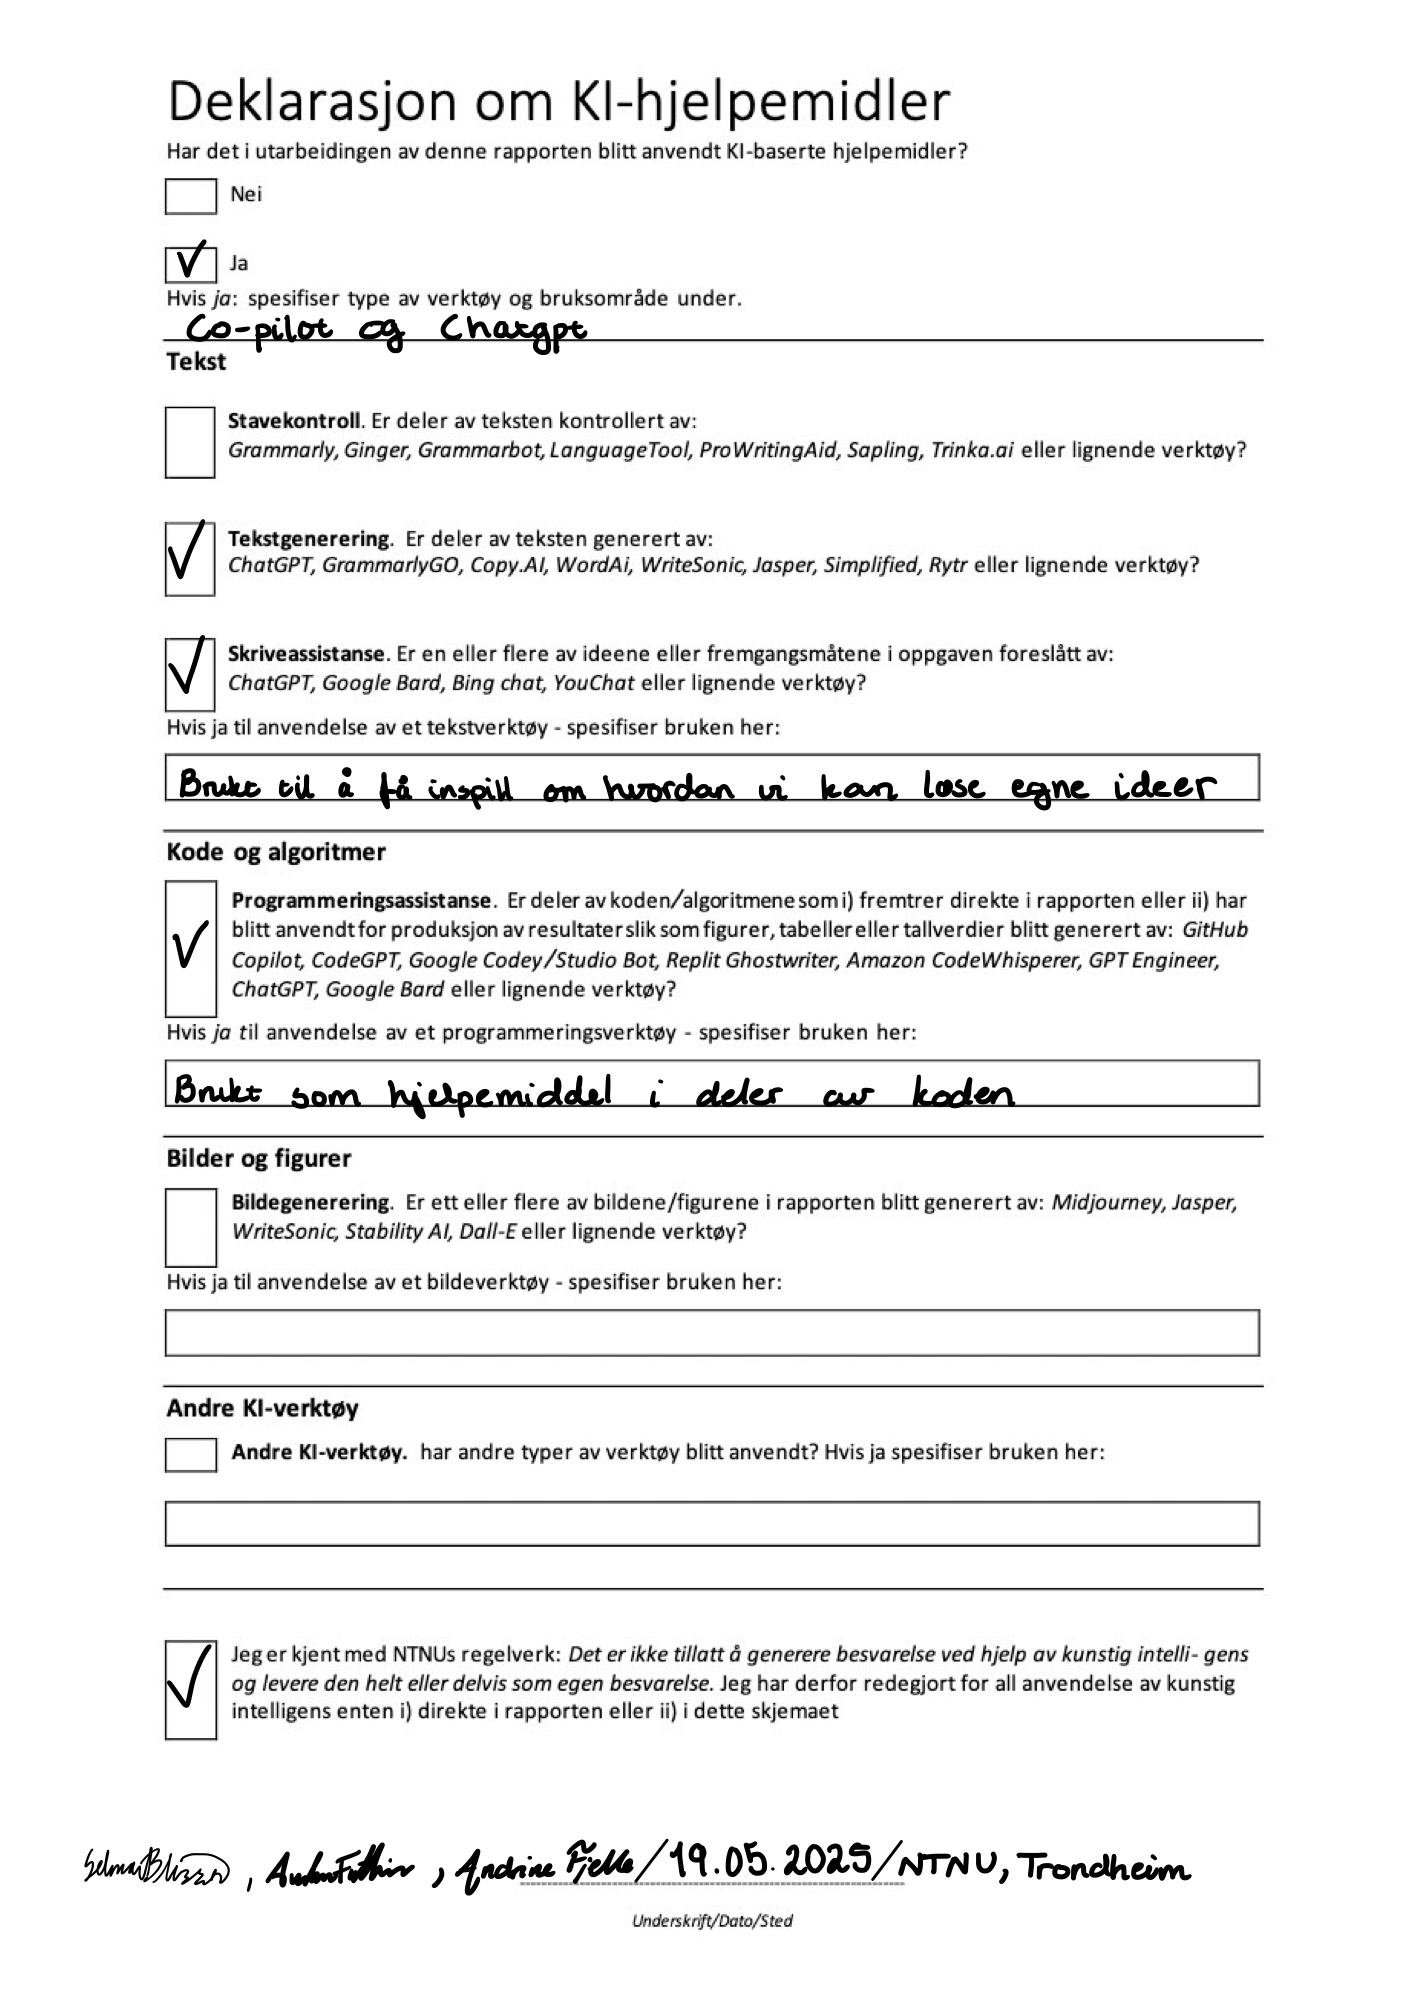 Deklarasjon om KI-hjelpemidler
Har det i utarbeidingen av denne rapporten blitt anvendt KI-baserte hjelpemidler?
Nei
Ja
Hvis ja: spesifiser type av verktøy og bruksområde under.
Co-pilot og Chatgpt
Tekst
Stavekontroll. Er deler av teksten kontrollert av:
Grammarly, Ginger, Grammarbot, LanguageTool, ProWritingAid, Sapling, Trinka.ai eller lignende verktøy?
Tekstgenerering. Er deler av teksten generert av:
ChatGPT, GrammarlyGO, Copy.AI, WordAi, WriteSonic, Jasper, Simplified, Rytr eller lignende verktøy?
Skriveassistanse. Er en eller flere av ideene eller fremgangsmåtene i oppgaven foreslått av:
ChatGPT, Google Bard, Bing chat, YouChat eller lignende verktøy?
Hvis ja til anvendelse av et tekstverktøy - spesifiser bruken her:
Brukt til å få inspill om hvordan vi kan løse egne ideer
Kode og algoritmer
Programmeringsassistanse. Er deler av koden/algoritmene som i) fremtrer direkte i rapporten eller ii) har
blitt anvendt for produksjon av resultater slik som figurer, tabeller eller tallverdier blitt generert av: GitHub
Copilot, CodeGPT, Google Codey/Studio Bot, Replit Ghostwriter, Amazon CodeWhisperer, GPT Engineer,
ChatGPT, Google Bard eller lignende verktøy?
Hvis ja til anvendelse av et programmeringsverktøy - spesifiser bruken her:
Brukt som hjelpemiddel i deler av koden
Bilder og figurer
Bildegenerering. Er ett eller flere av bildene/figurene i rapporten blitt generert av: Midjourney, Jasper,
WriteSonic, Stability AI, Dall-E eller lignende verktøy?
Hvis ja til anvendelse av et bildeverktøy - spesifiser bruken her:
Andre KI-verktøy
Andre KI-verktøy. har andre typer av verktøy blitt anvendt? Hvis ja spesifiser bruken her:
Jeg er kjent med NTNUs regelverk: Det er ikke tillatt å generere besvarelse ved hjelp av kunstig intelli- gens
og levere den helt eller delvis som egen besvarelse. Jeg har derfor redegjort for all anvendelse av kunstig
intelligens enten i) direkte i rapporten eller ii) i dette skjemaet
Selma , , Andrine Fjelle/19.05.2025/NTNU, Trondheim
Underskrift/Dato/Sted